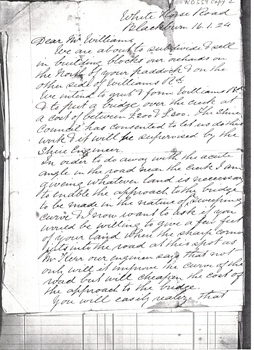 White Horse Road
Blackburn 16.1.24
Dear Mr Williams,
We are about to subdivide & sell
in building blocks our orchards on
the North of your paddock & on the
other side of Williams Rd.
We intend to grub & form Williams Rd
& to put a bridge over the creek at
a cost of between £200 & £300. The Shire
Council has consented to let us do this
work & it will be supervised by the
Shire Engineer.
In order to do away with the acute
angle in the road near the creek I am
giving whatever land is necessary
to enable the approach to the bridge
to be made in the nature of a sweeping
curve & I now want to ask if you
would be willing to give a few feet
of your land where the sharp corner
juts into the road at this spot as
Mr our engineer says that not
only will it improve the curve of the
road but will cheapen the cost of
the approach to the bridge.
You will easily realize that